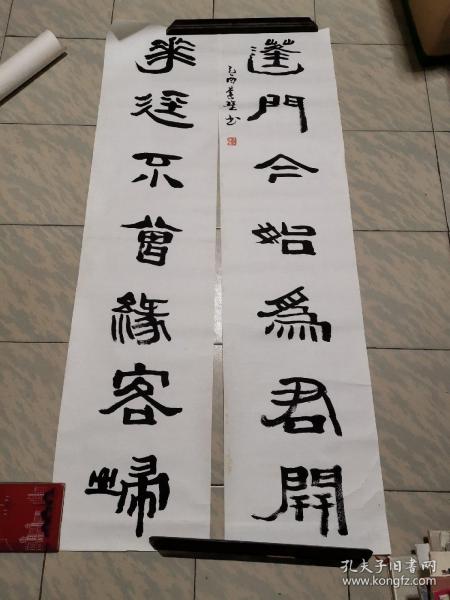 蓬門今始爲君開
乙酉 书
華逕不曾緣客埽
孔夫子旧书网
www.kongfz.com